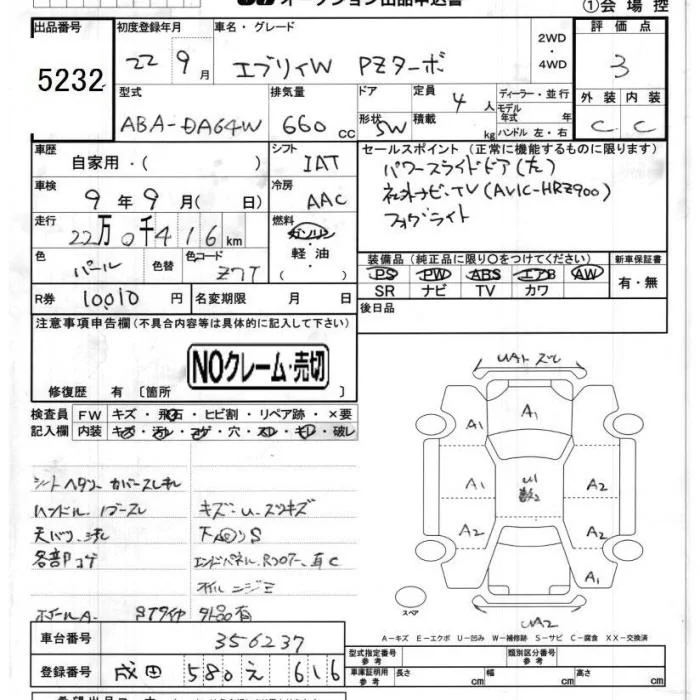 オークション出品申込書
①会場控
出品番号 初度登録年月 車名・グレード 2WD・4WD 評価点
5232 22 9月 エブリイW PZターボ 3
型式 排気量 ドア 定員 4人 ディーラー・並行 外装 内装
ABA-DA64W 660cc 5W 形状 積載 kg モデル年式 年 ハンドル 左・右 C C
車歴 自家用・( ) シフト IAT
セールスポイント(正常に機能するものに限ります)
パワースライドドア(左)
社外ナビ・TV(AVIC-HRZ900)
フォグライト
車検 9年9月( 日) 冷房 AAC
走行 22万0千416km 燃料 ガソリン・軽油・( )
色 パール 色替 色コード Z7T
装備品(純正品に限り○をつけてください) 新車保証書
PS PW ABS エアB AW 有・無
SR ナビ TV カワ
R券 10010円 名変期限 月 日
後日品
注意事項申告欄(不具合内容等は具体的に記入して下さい)
NOクレーム・売切
修復歴 有〔箇所 〕
検査員 FW キズ・飛石・ヒビ割・リペア跡・×要
記入欄 内装 キズ・汚レ・コゲ・穴・スレ・キレ・破レ
シートヘタリ カバースレキレ
ハンドル
天バリ 汚れ
各部コゲ
キズ・U
下回りS
エンドパネル
オイルニジミ
ホイールA STタイヤ 外品有
A1
A1 A1 A2
U1
A2 A2
A1
UA2
スペア
A-キズ E-エクボ U-凹み W-補修跡 S-サビ C-腐食 XX-交換済
車台番号 356237
登録番号 成田 580 え 616
型式指定番号 参考 類別区分番号 参考
車庫証明用 参考 長さ cm 幅 cm 高さ cm